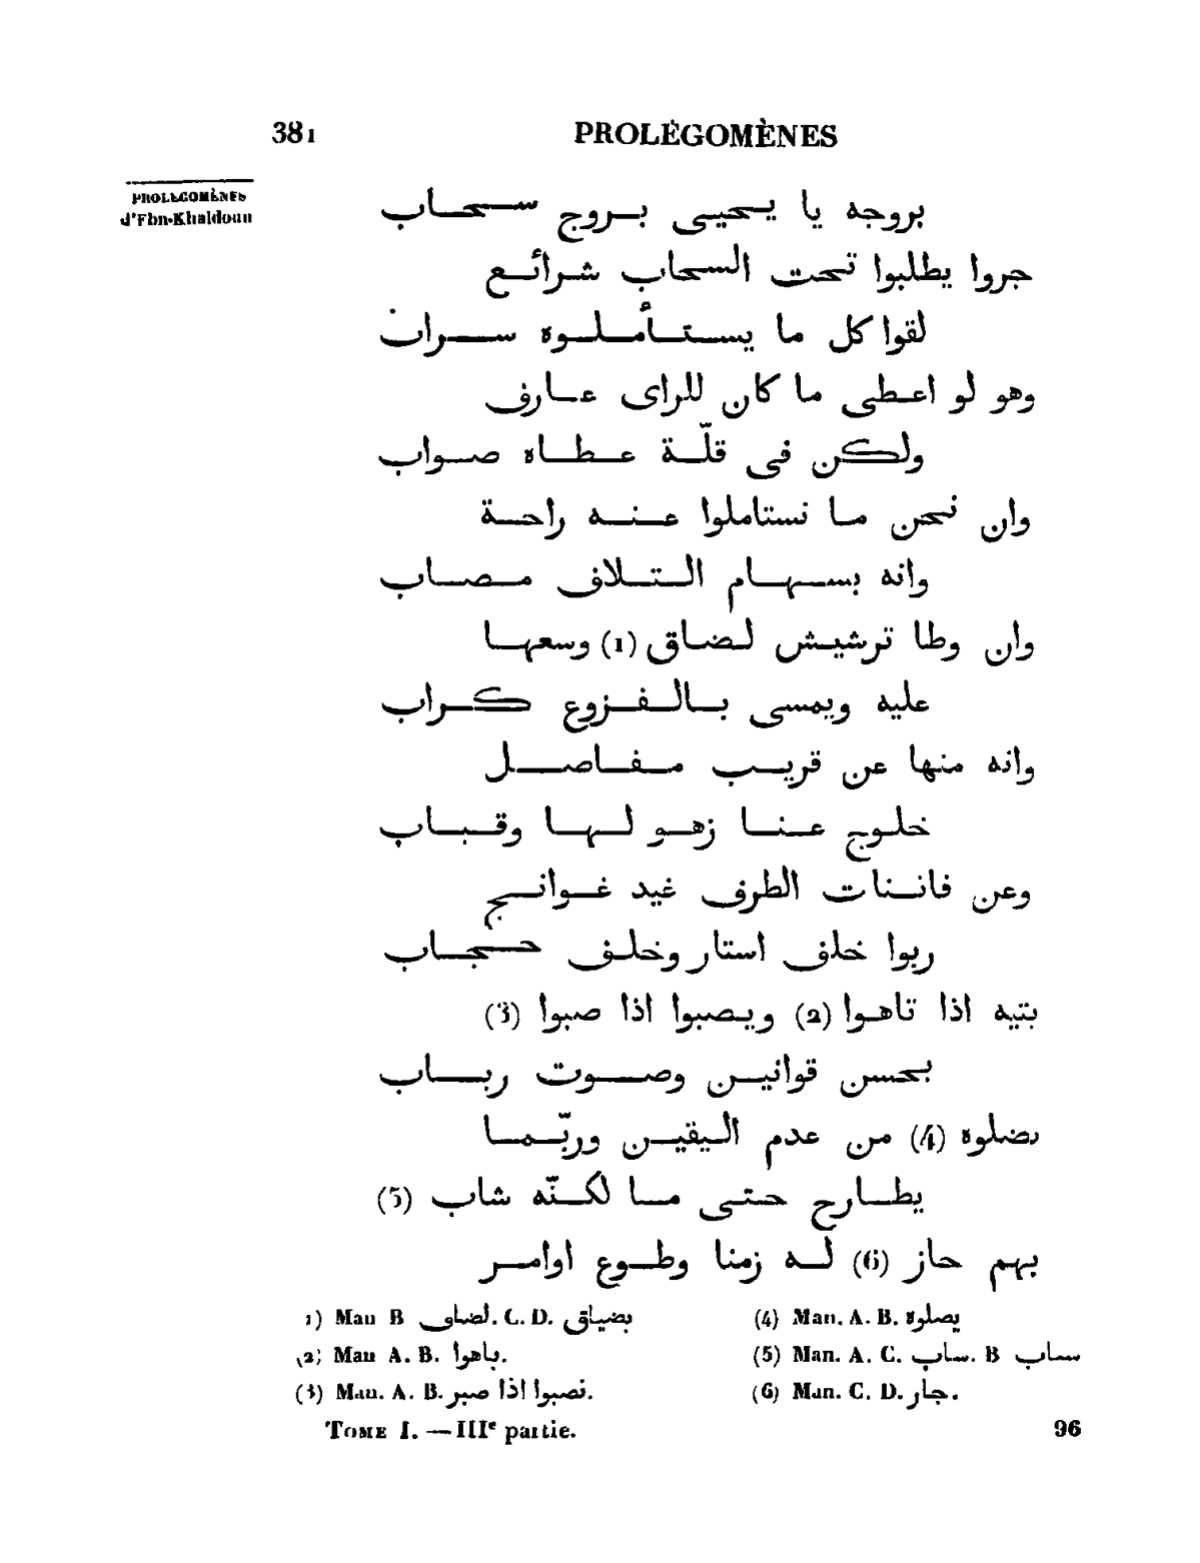 381 PROLÉGOMÈNES
PROLÉGOMÈNES
d'Ebn-Khaldoun
بروجه يا يحيى بروج سحاب
جروا يطلبوا تحت السحاب شرائع
لقوا كل ما يستأملوه سراب
وهو لو اعطى ما كان للراى عارف
ولكن فى قلّة عطاه صواب
وان نحن ما نستاملوا عنه راحة
وانه بسهام التلاف مصاب
وان وطا ترشيش لضاق (1) وسعها
عليه ويمسى بالفزوع كراب
وانه منها عن قريب مفاصل
خلوج عنا زهو لها وقباب
وعن فانتات الطرف غيد غوانج
ربوا خلف استار وخلف حجاب
بتيه اذا تاهوا (2) ويصبوا اذا صبوا (3)
بحسن قوانين وصوت رباب
يضلوه (4) من عدم اليقين وربّما
يطارح حتى ما لكنّه شاب (5)
بهم حاز (6) له زمنا وطوع اوامر
1) Man B لضاف. C. D. بضياق
(2) Man A. B. باهوا.
(3) Man. A. B. نصبوا اذا صبر.
(4) Man. A. B. يصلوة
(5) Man. A. C. ساب. B سىاب
(6) Man. C. D. جار.
TOME I. — IIIe partie. 96